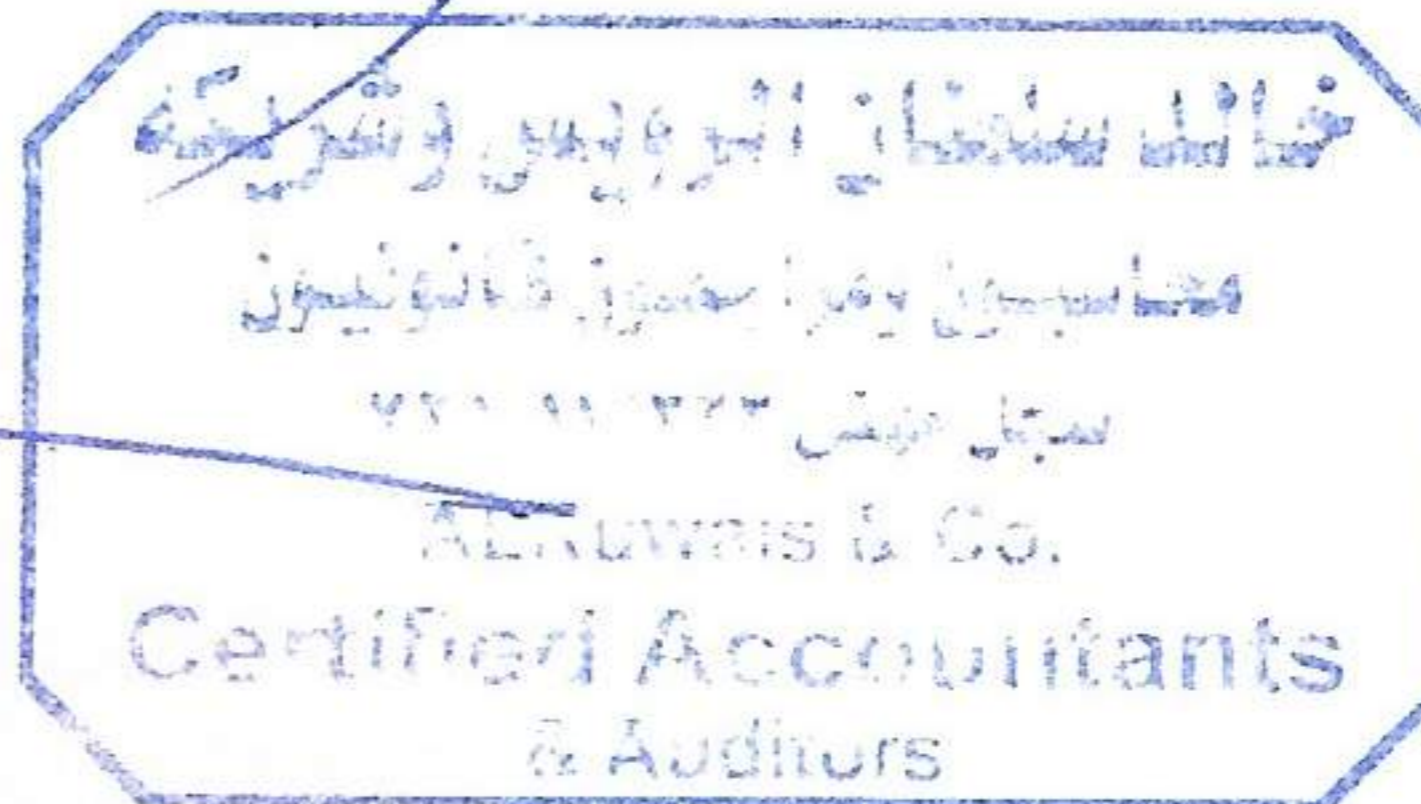 خالد سلمان الرويس وشريكه
محاسبون ومراجعون قانونيون
سجل
Al-Ruwais & Co.
Certified Accountants
& Auditors